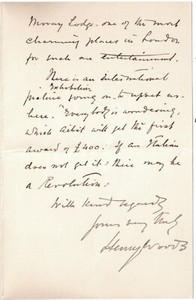 Moray Lodge. one of the most
charming places in London
for such an entertainment.
There is an International
Exhibition
going on to upset us
here. Everybody is wondering
which artist will get the first
award of £400: If an Italian
does not get it: there may be
a Revolution:
With kind regards
yours very truly
Henry Woods